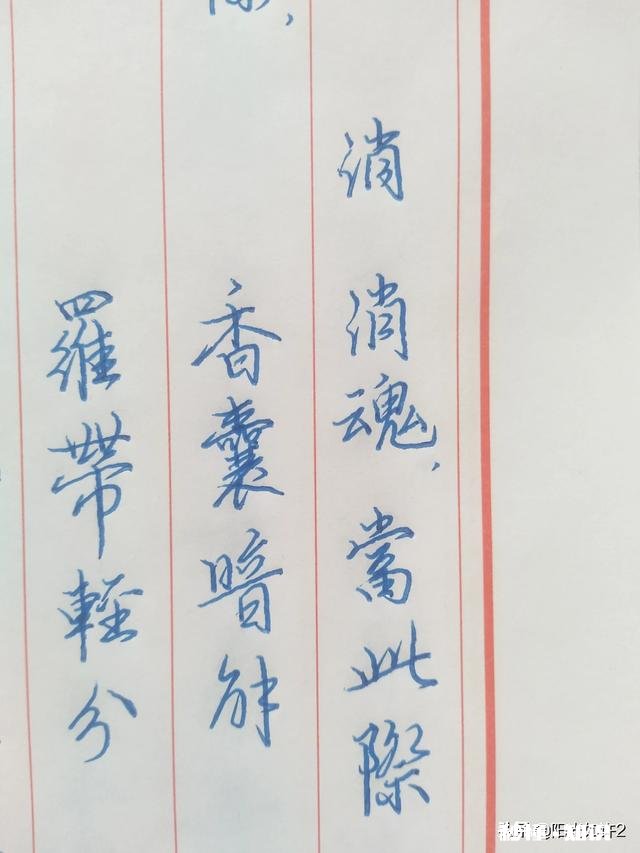 消 消魂，當此際
香囊暗解
羅帶輕分
際，